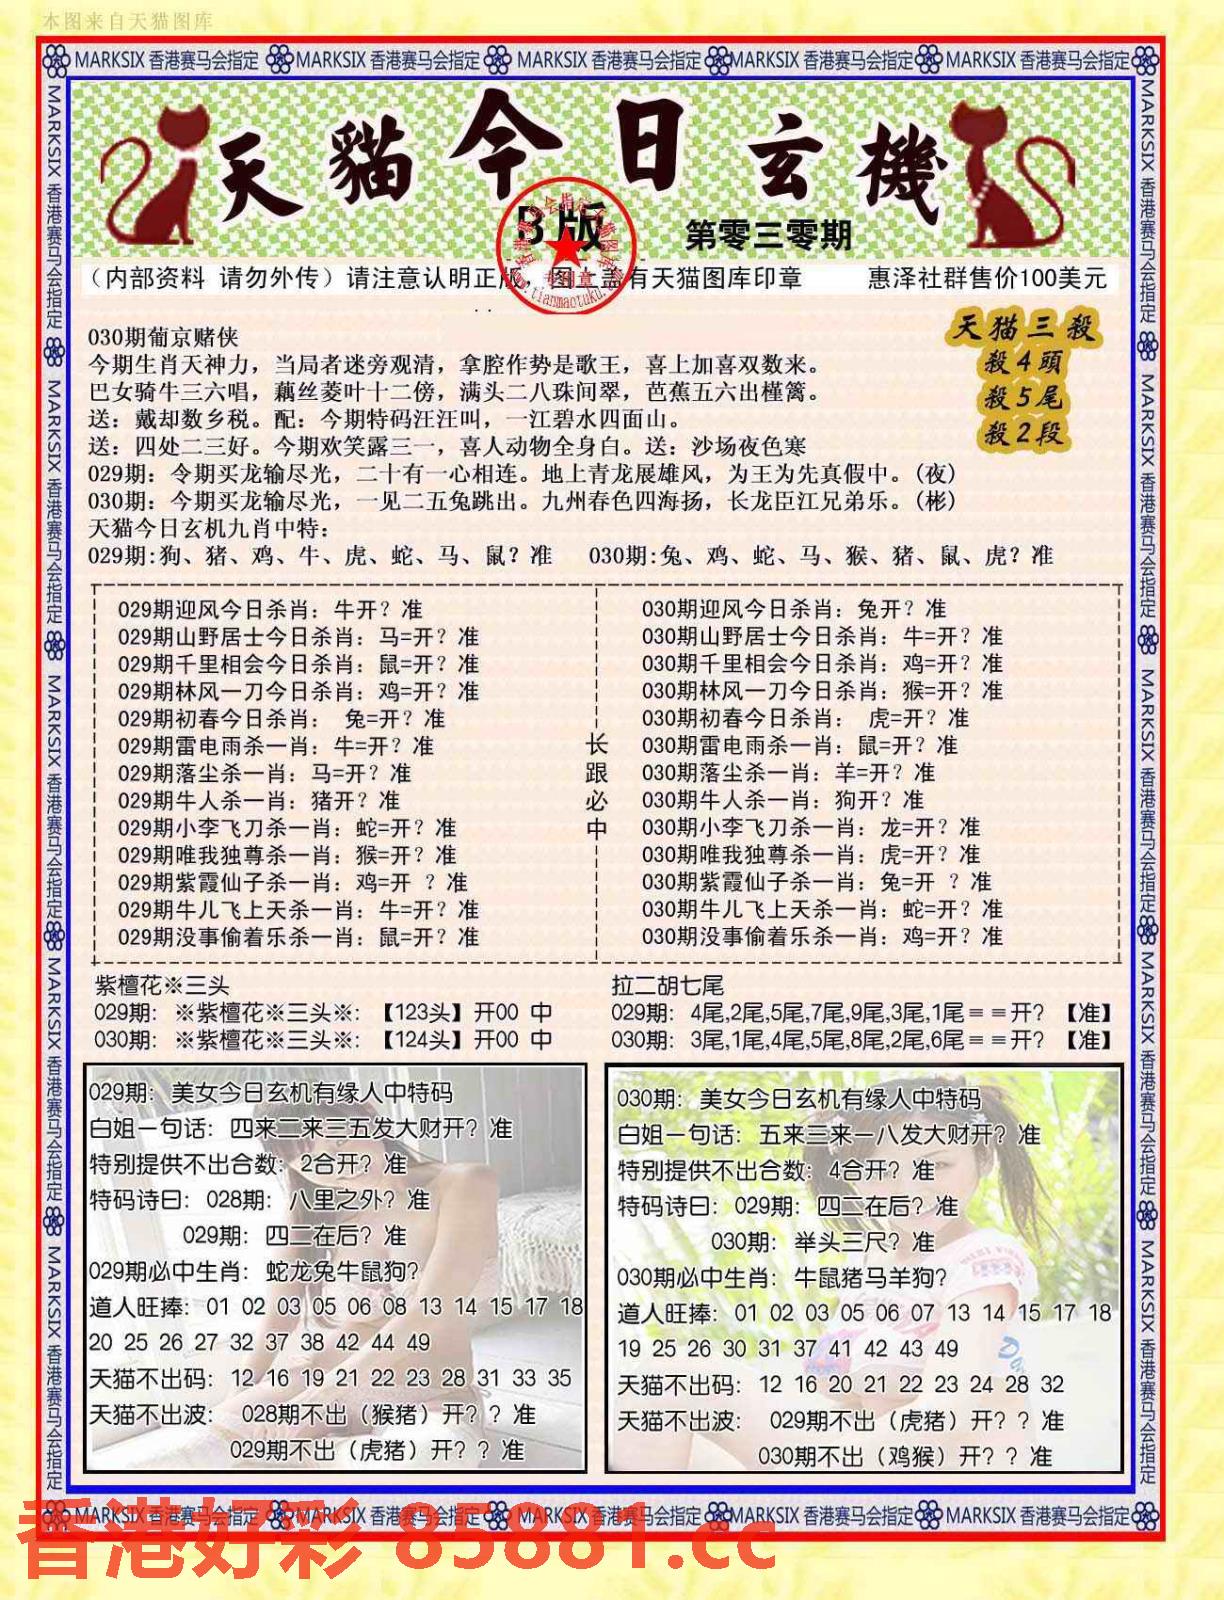 本图来自天猫图库
MARKSIX 香港赛马会指定 MARKSIX 香港赛马会指定 MARKSIX 香港赛马会指定 MARKSIX 香港赛马会指定 MARKSIX 香港赛马会指定
天貓今日玄機
B版
第零三零期
（内部资料 请勿外传）请注意认明正版，图上盖有天猫图库印章 惠泽社群售价100美元
天猫三殺
殺4頭
殺5尾
殺2段
030期葡京赌侠
今期生肖天神力，当局者迷旁观清，拿腔作势是歌王，喜上加喜双数来。
巴女骑牛三六唱，藕丝菱叶十二傍，满头二八珠间翠，芭蕉五六出槿篱。
送：戴却数乡税。配：今期特码汪汪叫，一江碧水四面山。
送：四处二三好。今期欢笑露三一，喜人动物全身白。送：沙场夜色寒
029期：令期买龙输尽光，二十有一心相连。地上青龙展雄风，为王为先真假中。（夜）
030期：今期买龙输尽光，一见二五兔跳出。九州春色四海扬，长龙臣江兄弟乐。（彬）
天猫今日玄机九肖中特：
029期:狗、猪、鸡、牛、虎、蛇、马、鼠？准 030期:兔、鸡、蛇、马、猴、猪、鼠、虎？准
029期迎风今日杀肖：牛开？准
029期山野居士今日杀肖：马=开？准
029期千里相会今日杀肖：鼠=开？准
029期林风一刀今日杀肖：鸡=开？准
029期初春今日杀肖： 兔=开？准
029期雷电雨杀一肖：牛=开？准
029期落尘杀一肖：马=开？准
029期牛人杀一肖：猪开？准
029期小李飞刀杀一肖：蛇=开？准
029期唯我独尊杀一肖：猴=开？准
029期紫霞仙子杀一肖：鸡=开 ？准
029期牛儿飞上天杀一肖：牛=开？准
029期没事偷着乐杀一肖：鼠=开？准
长跟必中
030期迎风今日杀肖：兔开？准
030期山野居士今日杀肖：牛=开？准
030期千里相会今日杀肖：鸡=开？准
030期林风一刀今日杀肖：猴=开？准
030期初春今日杀肖： 虎=开？准
030期雷电雨杀一肖：鼠=开？准
030期落尘杀一肖：羊=开？准
030期牛人杀一肖：狗开？准
030期小李飞刀杀一肖：龙=开？准
030期唯我独尊杀一肖：虎=开？准
030期紫霞仙子杀一肖：兔=开 ？准
030期牛儿飞上天杀一肖：蛇=开？准
030期没事偷着乐杀一肖：鸡=开？准
紫檀花※三头
029期：※紫檀花※三头※：【123头】开00 中
030期：※紫檀花※三头※：【124头】开00 中
拉二胡七尾
029期：4尾,2尾,5尾,7尾,9尾,3尾,1尾＝＝开？【准】
030期：3尾,1尾,4尾,5尾,8尾,2尾,6尾＝＝开？【准】
029期：美女今日玄机有缘人中特码
白姐一句话：四来二来三五发大财开？准
特别提供不出合数：2合开？准
特码诗曰：028期：八里之外？准
029期：四二在后？准
029期必中生肖：蛇龙兔牛鼠狗？
道人旺捧：01 02 03 05 06 08 13 14 15 17 18
20 25 26 27 32 37 38 42 44 49
天猫不出码：12 16 19 21 22 23 28 31 33 35
天猫不出波： 028期不出（猴猪）开？？准
029期不出（虎猪）开？？准
030期：美女今日玄机有缘人中特码
白姐一句话：五来三来一八发大财开？准
特别提供不出合数：4合开？准
特码诗曰：029期：四二在后？准
030期：举头三尺？准
030期必中生肖：牛鼠猪马羊狗？
道人旺捧：01 02 03 05 06 07 13 14 15 17 18
19 25 26 30 31 37 41 42 43 49
天猫不出码：12 16 20 21 22 23 24 28 32
天猫不出波： 029期不出（虎猪）开？？准
030期不出（鸡猴）开？？准
MARKSIX 香港赛马会指定 MARKSIX 香港赛马会指定 MARKSIX 香港赛马会指定 MARKSIX 香港赛马会指定 MARKSIX 香港赛马会指定
香港好彩 85881.cc
MARKSIX 香港赛马会指定 MARKSIX 香港赛马会指定 MARKSIX 香港赛马会指定 MARKSIX 香港赛马会指定 MARKSIX 香港赛马会指定
MARKSIX 香港赛马会指定 MARKSIX 香港赛马会指定 MARKSIX 香港赛马会指定 MARKSIX 香港赛马会指定 MARKSIX 香港赛马会指定